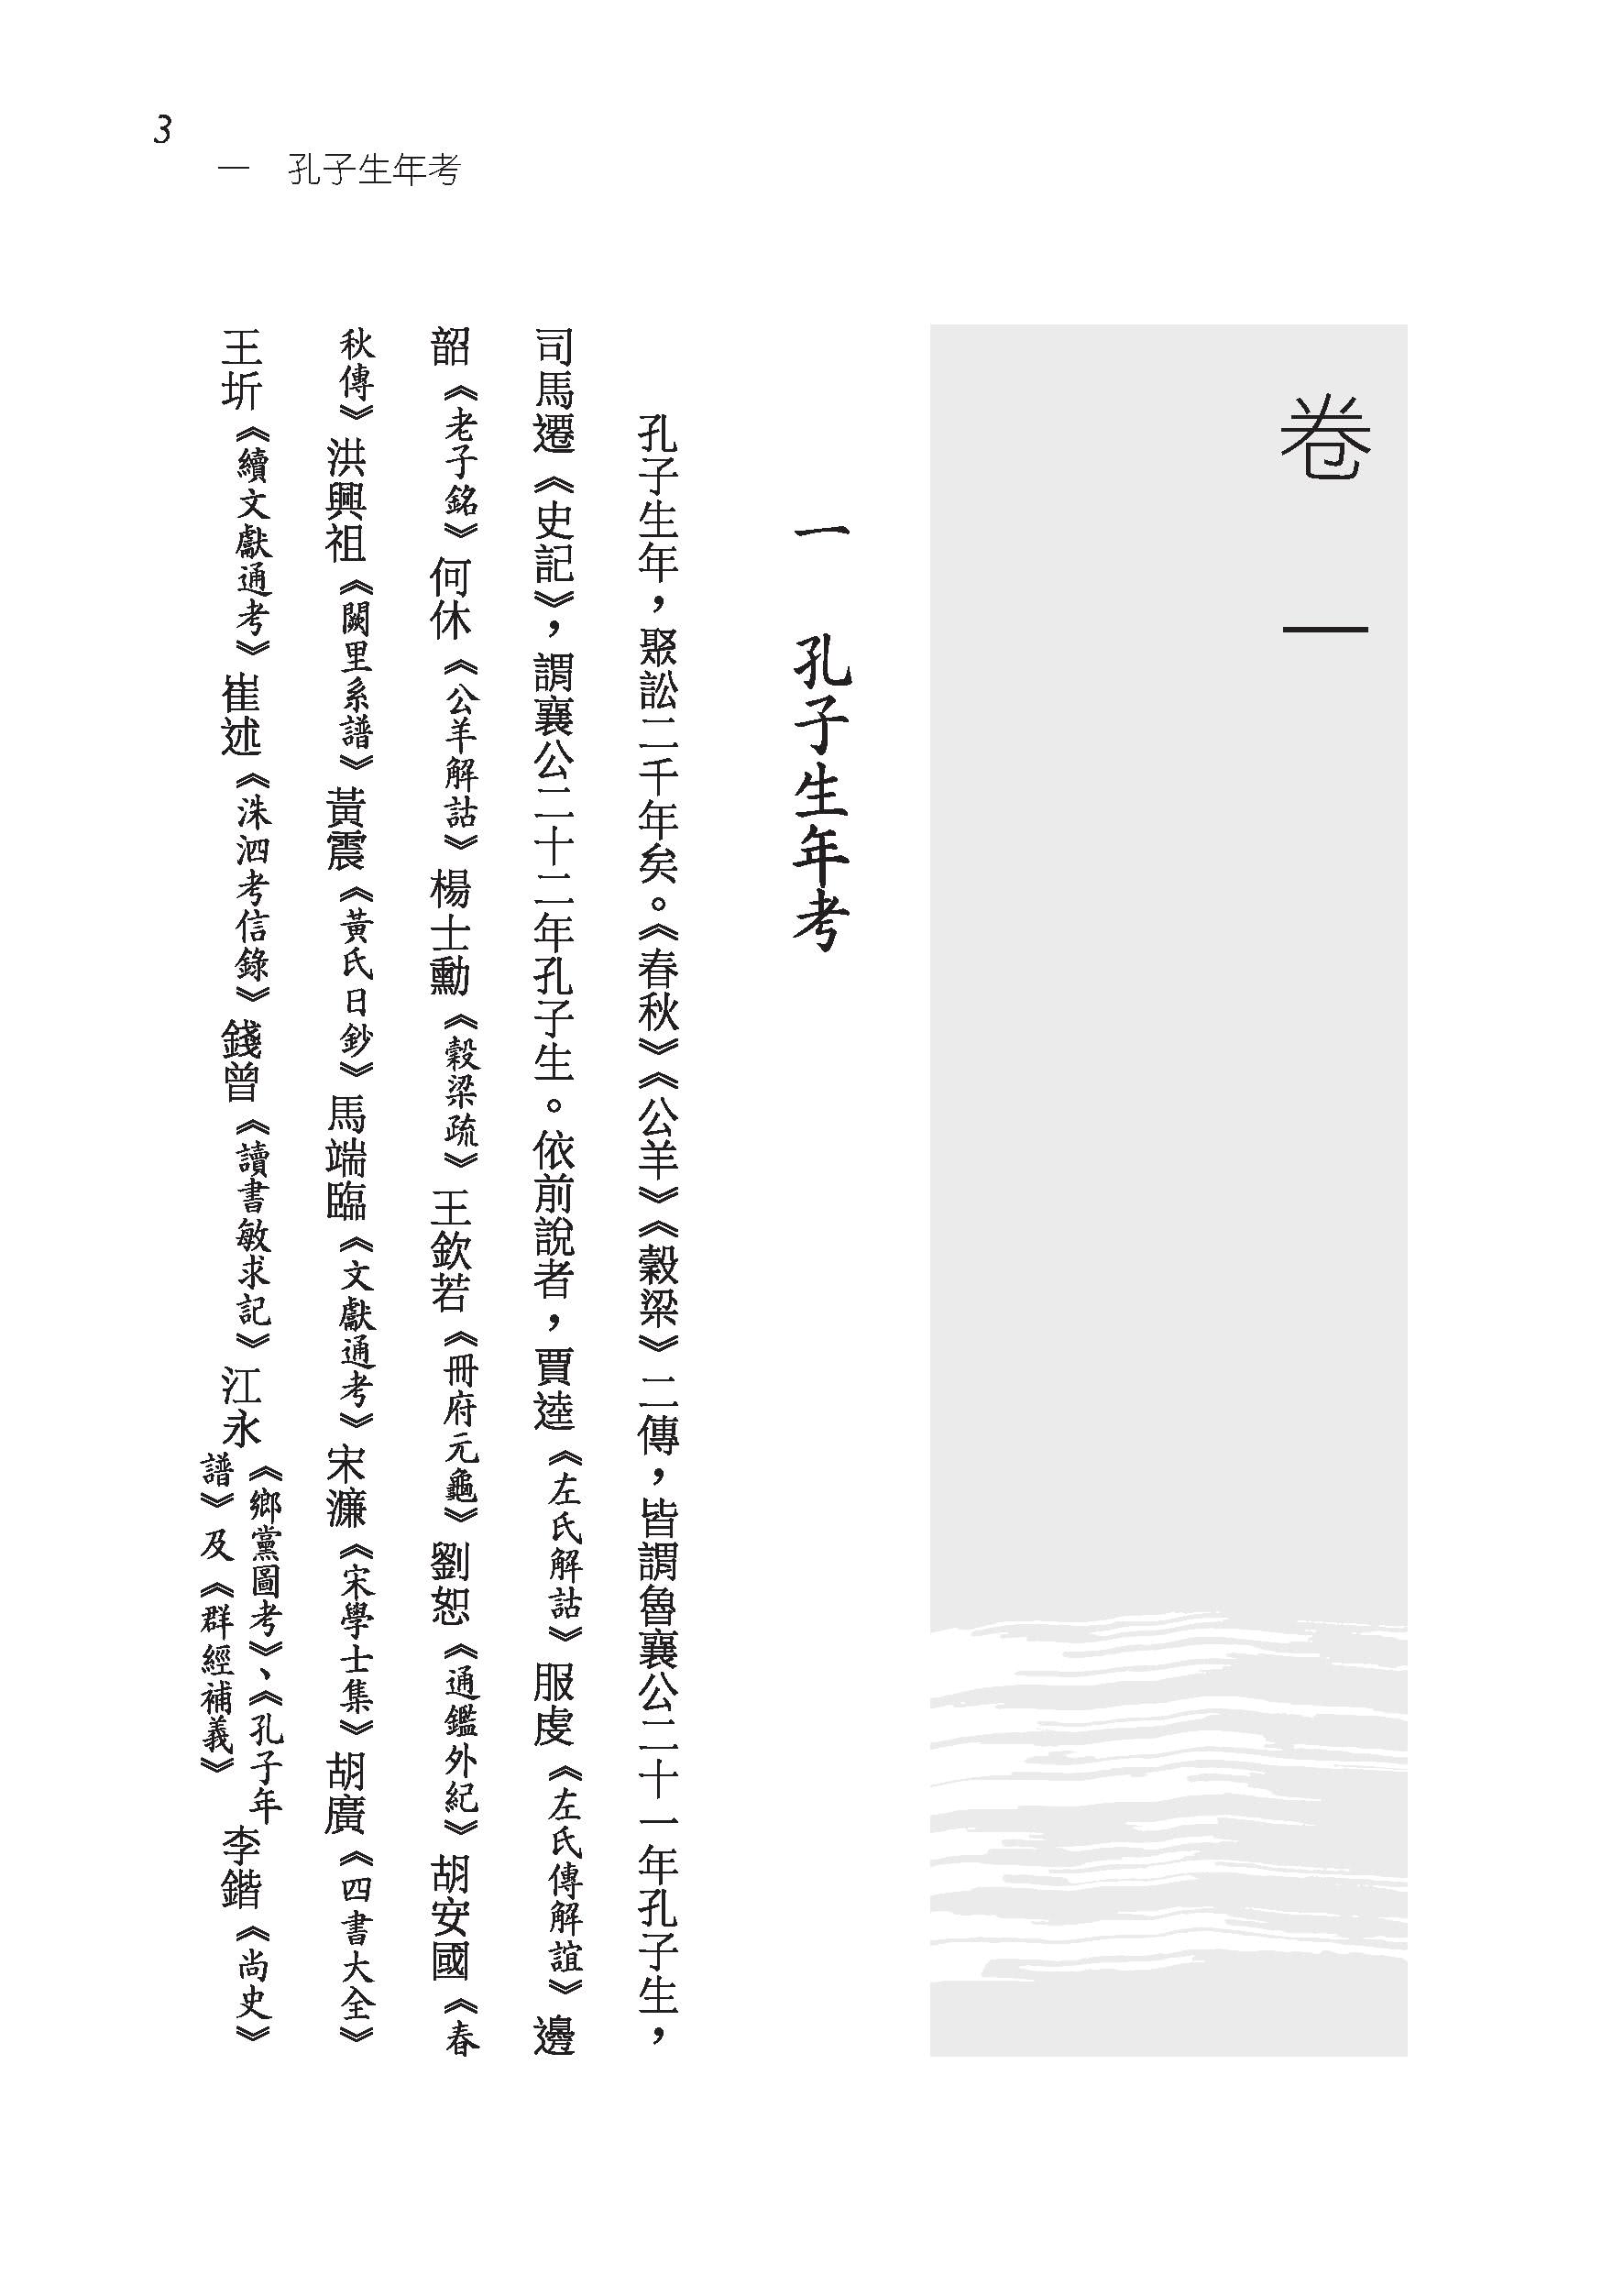 3
一　孔子生年考
卷一
一　孔子生年考
孔子生年，聚訟二千年矣。《春秋》《公羊》《穀梁》二傳，皆謂魯襄公二十一年孔子生，
司馬遷《史記》，謂襄公二十二年孔子生。依前說者，賈逵《左氏解詁》服虔《左氏傳解誼》邊
韶《老子銘》何休《公羊解詁》楊士勳《穀梁疏》王欽若《冊府元龜》劉恕《通鑑外紀》胡安國《春
秋傳》洪興祖《闕里系譜》黃震《黃氏日鈔》馬端臨《文獻通考》宋濂《宋學士集》胡廣《四書大全》
王圻《續文獻通考》崔述《洙泗考信錄》錢曾《讀書敏求記》江永《鄉黨圖考》、《孔子年譜》及《群經補義》李鍇《尚史》